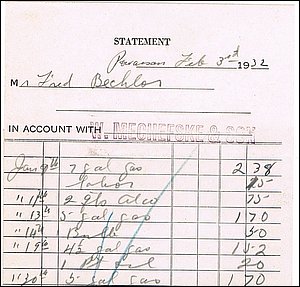 STATEMENT
Feb 3rd 1932
Mr Fred Bechlor
IN ACCOUNT WITH W. MECHEFSKE & SON
Jan 9th 7 gal gas 2 38
Labor 15
" 11th 2 Alco 75
" 13th 5 gal gas 1 70
" 14th Bulb 50
" 19th 4½ gal gas 1 52
1 20
" 30th 5 gal gas 1 70